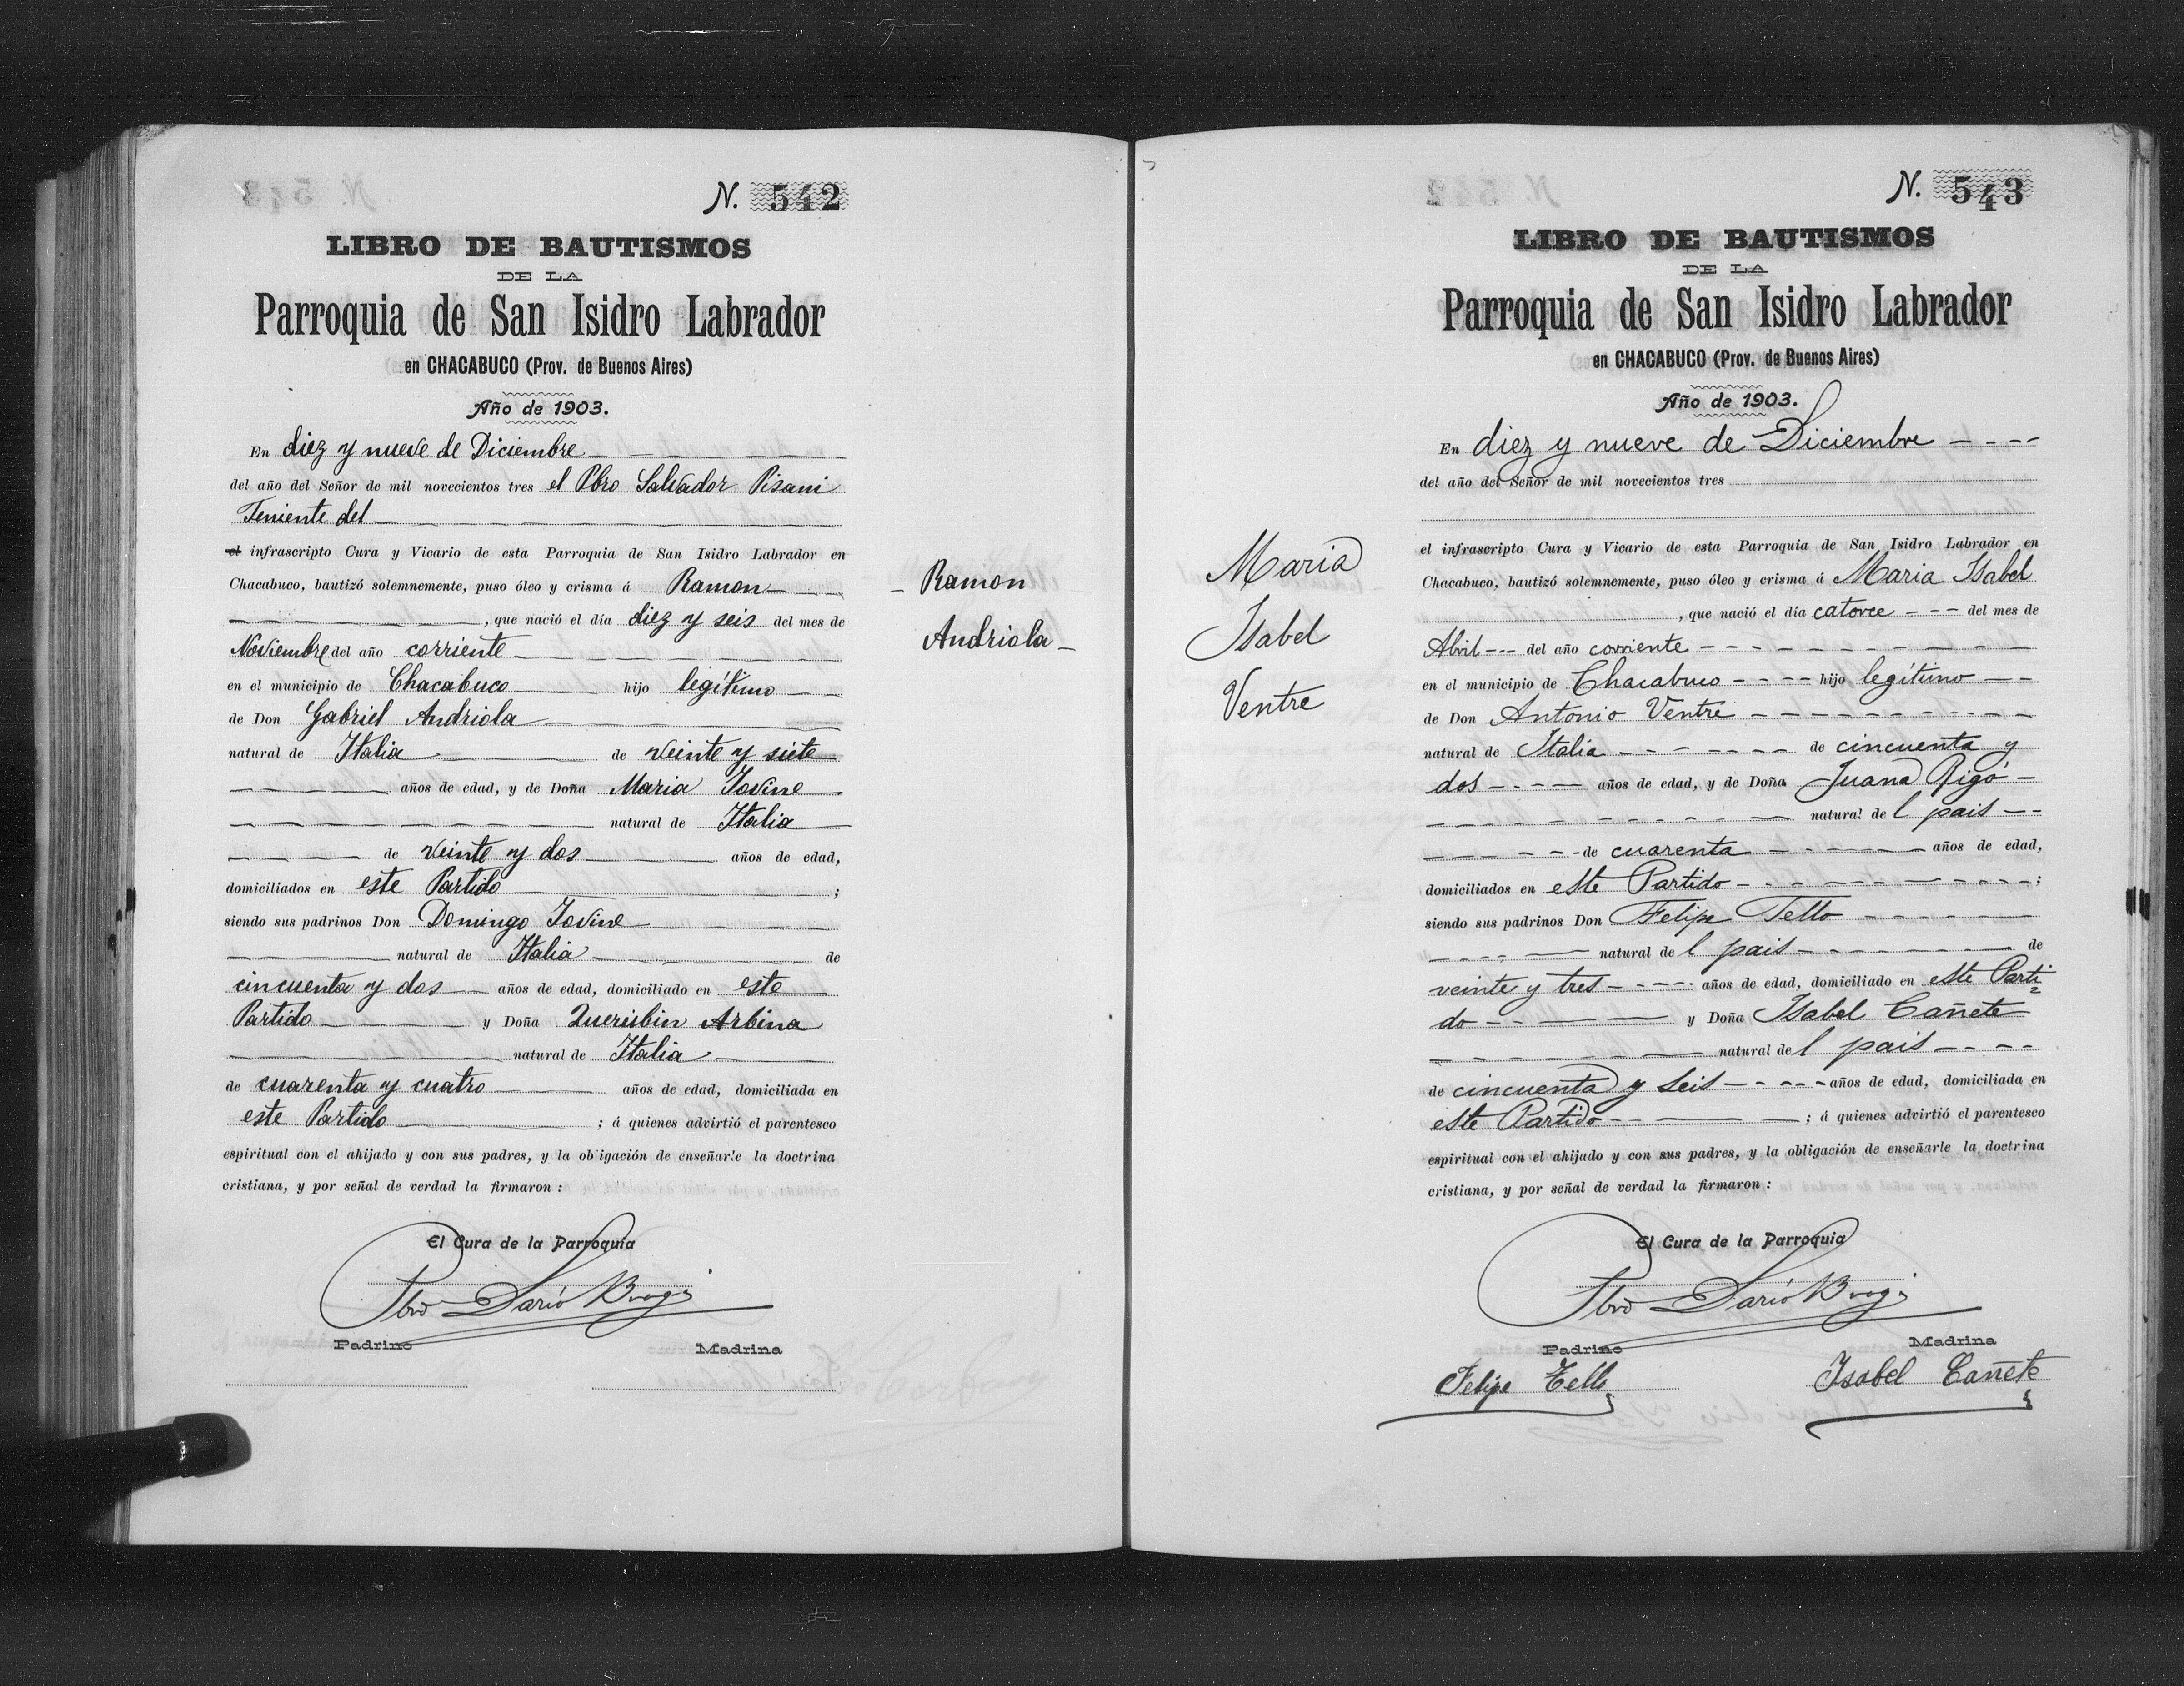 N. 542
LIBRO DE BAUTISMOS
DE LA
Parroquia de San Isidro Labrador
en CHACABUCO (Prov. de Buenos Aires)
Año de 1903.
En diez y nueve de Diciembre
del año del Señor de mil novecientos tres el Pbro Salvador Pisani
Teniente del
el infrascripto Cura y Vicario de esta Parroquia de San Isidro Labrador en
Chacabuco, bautizó solemnemente, puso óleo y crisma á Ramon
, que nació el día diez y seis del mes de
Noviembre del año corriente
en el municipio de Chacabuco hijo legítimo
de Don Gabriel Andriola
natural de Italia de veinte y siete
años de edad, y de Doña Maria Iovine
natural de Italia
de veinte y dos años de edad,
domiciliados en este Partido ;
siendo sus padrinos Don Domingo Iovine
natural de Italia de
cincuenta y dos años de edad, domiciliado en este
Partido y Doña Querubin Arbina
natural de Italia
de cuarenta y cuatro años de edad, domiciliada en
este Partido ; á quienes advirtió el parentesco
espiritual con el ahijado y con sus padres, y la obligación de enseñarle la doctrina
cristiana, y por señal de verdad la firmaron :
El Cura de la Parroquia
Pbro Darío Brogi
Padrino Madrina
Ramon
Andriola
N. 543
LIBRO DE BAUTISMOS
DE LA
Parroquia de San Isidro Labrador
en CHACABUCO (Prov. de Buenos Aires)
Año de 1903.
Maria
Isabel
Ventre
En diez y nueve de Diciembre
del año del Señor de mil novecientos tres
el infrascripto Cura y Vicario de esta Parroquia de San Isidro Labrador en
Chacabuco, bautizó solemnemente, puso óleo y crisma á Maria Isabel
, que nació el día catorce del mes de
Abril del año corriente
en el municipio de Chacabuco hijo legítimo
de Don Antonio Ventre
natural de Italia de cincuenta y
dos años de edad, y de Doña Juana Rigó
natural del pais
de cuarenta años de edad,
domiciliados en este Partido ;
siendo sus padrinos Don Felipe Tello
natural del pais de
veinte y tres años de edad, domiciliado en este Parti=
do y Doña Isabel Cañete
natural del pais
de cincuenta y seis años de edad, domiciliada en
este Partido ; á quienes advirtió el parentesco
espiritual con el ahijado y con sus padres, y la obligación de enseñarle la doctrina
cristiana, y por señal de verdad la firmaron :
El Cura de la Parroquia
Pbro Darío Brogi
Padrino Madrina
Felipe Tello Isabel Cañete